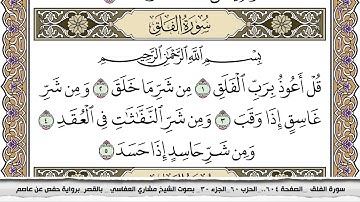 سُورَةُ الفَلَقِ
بِسْمِ اللَّهِ الرَّحْمَٰنِ الرَّحِيمِ
قُلْ أَعُوذُ بِرَبِّ الْفَلَقِ ١ مِن شَرِّ مَا خَلَقَ ٢ وَمِن شَرِّ
غَاسِقٍ إِذَا وَقَبَ ٣ وَمِن شَرِّ النَّفَّاثَاتِ فِي الْعُقَدِ ٤
وَمِن شَرِّ حَاسِدٍ إِذَا حَسَدَ ٥
سورة الفلق الصفحة ٦٠٤.. الحزب ٦٠ الجزء ٣٠ بصوت الشيخ مشاري العفاسي بالقصر برواية حفص عن عاصم